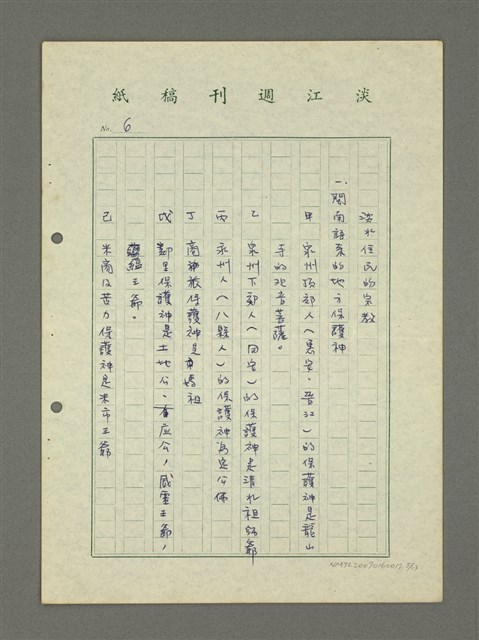 淡江週刊稿紙
No. 6
淡水住民的宗教
一、閩南語系的地方保護神
甲 泉州頂郊人(惠安、晉江)的保護神是龍山
寺的观音菩薩。
乙 泉州下郊人(同安)的保護神是清水祖師爺
丙 永州人(八縣人)的保護神为定公佛
丁 商旅保護神是媽祖
戊 鄰里保護神是土地公、有应公,威靈王爺,
蕴王爺。
己 米商及苦力保護神是米市王爺